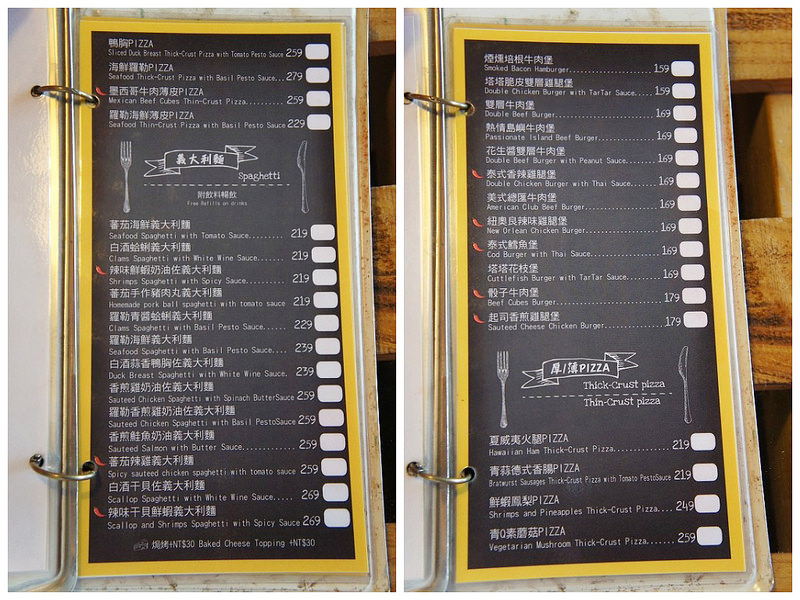 鴨胸PIZZA
Sliced Duck Breast Thick-Crust Pizza with Tomato Pesto Sauce 259
海鮮羅勒PIZZA
Seafood Thick-Crust Pizza with Basil Pesto Sauce... 279
墨西哥牛肉薄皮PIZZA
Mexican Beef Cubes Thin-Crust Pizza.......... 259
羅勒海鮮薄皮PIZZA
Seafood Thin-Crust Pizza with Basil Pesto Sauce 229
義大利麵
Spaghetti
附飲料暢飲
Free Refills on drinks
蕃茄海鮮義大利麵
Seafood Spaghetti with Tomato Sauce....... 219
白酒蛤蜊義大利麵
Clams Spaghetti with White Wine Sauce... 219
辣味鮮蝦奶油佐義大利麵
Shrimps Spaghetti with Spicy Sauce....... 219
蕃茄手作豬肉丸義大利麵
Homemade pork ball spaghetti with tomato sauce 219
羅勒青醬蛤蜊義大利麵
Clams Spaghetti with Basil Pesto Sauce...... 229
羅勒海鮮義大利麵
Seafood Spaghetti with Basil Pesto Sauce.... 239
白酒蒜香鴨胸佐義大利麵
Duck Breast Spaghetti with White Wine Sauce. 239
香煎雞奶油佐義大利麵
Sauteed Chicken Spaghetti with Spinach ButterSauce 259
羅勒香煎雞奶油佐義大利麵
Sauteed Chicken Spaghetti with Basil PestoSauce 259
香煎鮭魚奶油義大利麵
Sauteed Salmon with Butter Sauce.......... 259
蕃茄辣雞義大利麵
Spicy sauteed chicken spaghetti with tomato sauce 259
白酒干貝佐義大利麵
Scallop Spaghetti with White Wine Sauce..... 269
辣味干貝鮮蝦義大利麵
Scallop and Shrimps Spaghetti with Spicy Sauce 269
焗烤+NT$30 Baked Cheese Topping +NT$30
煙燻培根牛肉堡
Smoked Bacon Hamburger.................. 159
塔塔脆皮雙層雞腿堡
Double Chicken Burger with TarTar Sauce..... 159
雙層牛肉堡
Double Beef Burger...................... 169
熱情島嶼牛肉堡
Passionate Island Beef Burger............ 169
花生醬雙層牛肉堡
Double Beef Burger with Peanut Sauce....... 169
泰式香辣雞腿堡
Double Chicken Burger with Thai Sauce...... 169
美式總匯牛肉堡
American Club Beef Burger................ 169
紐奧良辣味雞腿堡
New Orlean Chicken Burger................ 169
泰式鱈魚堡
Cod Burger with Thai Sauce............... 169
塔塔花枝堡
Cuttlefish Burger with TarTar Sauce....... 169
骰子牛肉堡
Beef Cubes Burger........................ 179
起司香煎雞腿堡
Sauteed Cheese Chicken Burger............ 179
厚/薄PIZZA
Thick-Crust pizza
Thin-Crust pizza
夏威夷火腿PIZZA
Hawaiian Ham Thick-Crust Pizza........... 219
青蒜德式香腸PIZZA
Bratwurst Sausages Thick-Crust Pizza with Tomato PestoSauce 219
鮮蝦鳳梨PIZZA
Shrimps and Pineapples Thick-Crust Pizza.... 249
青Q素蘑菇PIZZA
Vegetarian Mushroom Thick-Crust Pizza....... 259